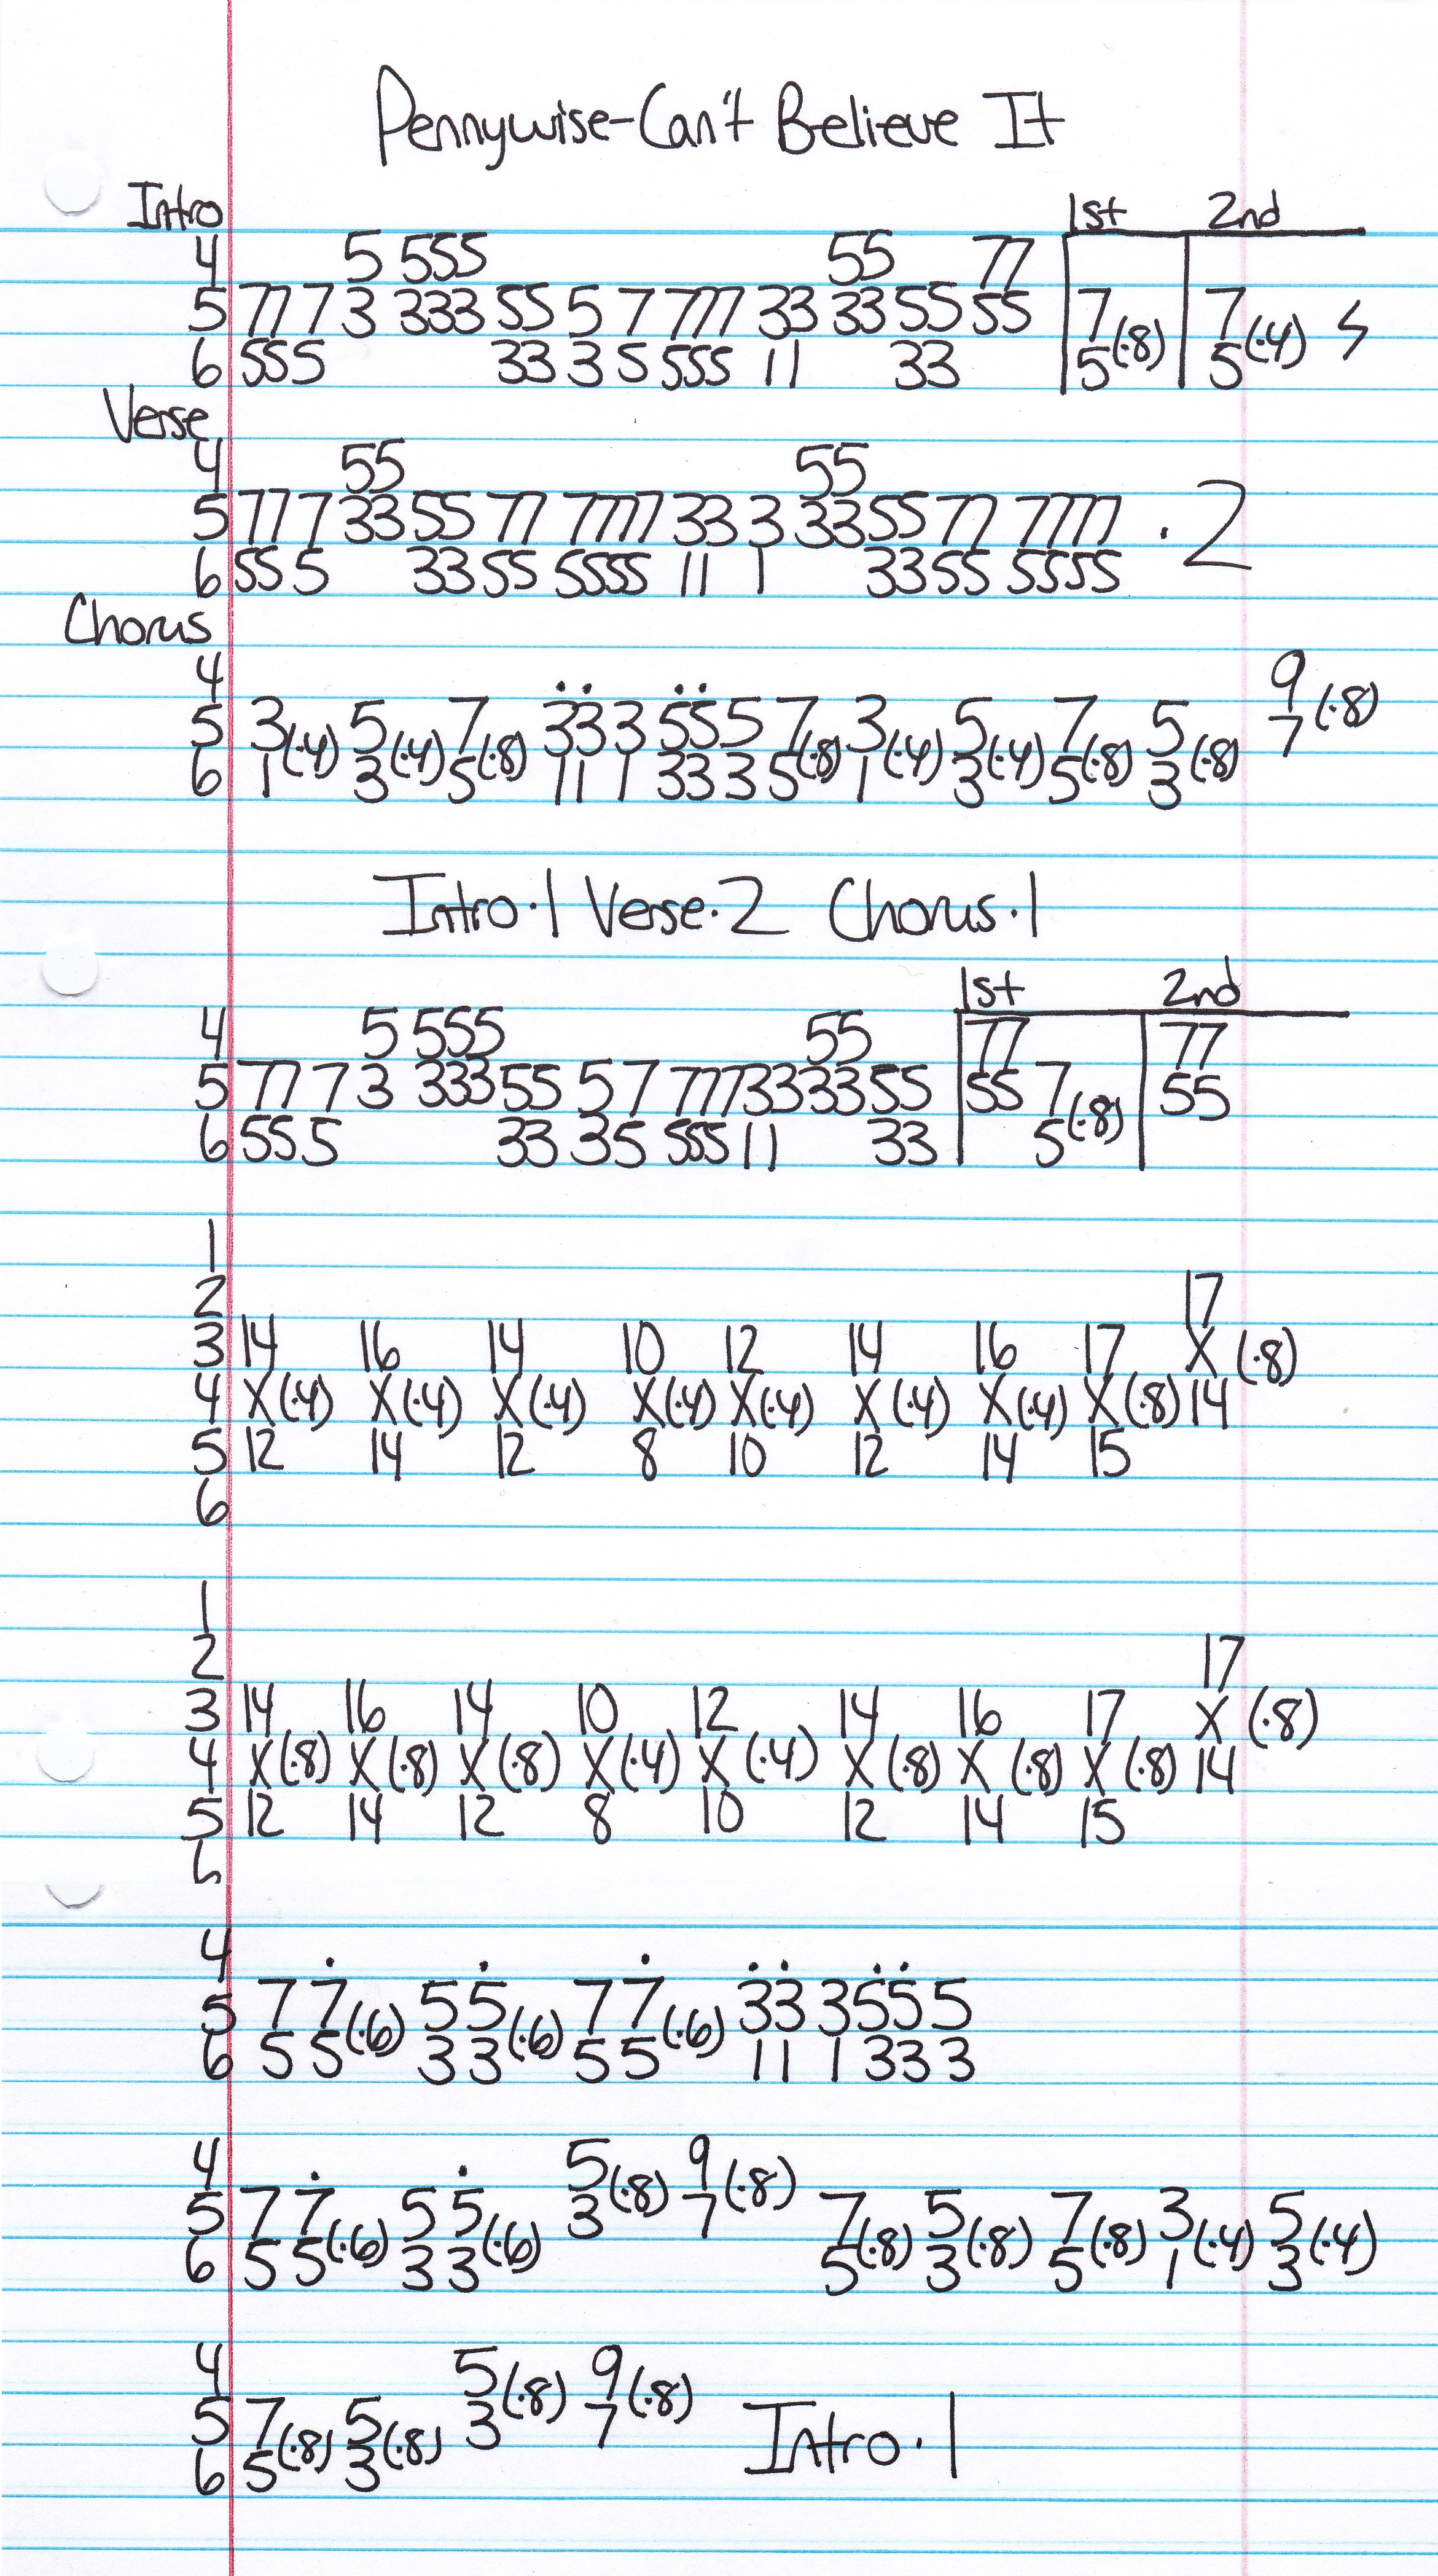 Pennywise-Can't Believe It
Intro 1st 2nd
4 5 555 55 77
5 77 7 3 333 55 5 7 777 33 33 55 55 7(·8) 7(·4) 5
6 55 5 33 3 5 555 11 33 5 5
Verse
4 55 55
5 77 7 33 55 77 7777 33 3 33 55 77 7777 · 2
6 55 5 33 55 5555 11 1 33 55 5555
Chorus
4 9
5 3(·4) 5(·4) 7(·8) 33 3 55 5 7(·8) 3(·4) 5(·4) 7(·8) 5(·8) 7(·8)
6 1 3 5 11 1 33 3 5 1 3 5 3
Intro·1 Verse·2 Chorus·1
1st 2nd
4 5 555 55 77 77
5 77 7 3 333 55 5 7 777 33 33 55 55 7(·8) 55
6 55 5 33 3 5 555 11 33 5
1
2 17
3 14 16 14 10 12 14 16 17 X (·8)
4 X(·4) X(·4) X(·4) X(·4) X(·4) X(·4) X(·4) X(·8) 14
5 12 14 12 8 10 12 14 15
6
1
2 17
3 14 16 14 10 12 14 16 17 X (·8)
4 X(·8) X(·8) X(·8) X(·4) X(·4) X(·8) X(·8) X(·8) 14
5 12 14 12 8 10 12 14 15
6
4
5 7 7(·6) 5 5(·6) 7 7(·6) 33 3 55 5
6 5 5 3 3 5 5 11 1 33 3
4 5(·8) 9(·8)
5 7 7(·6) 5 5(·6) 3 7 7(·8) 5(·8) 7(·8) 3(·4) 5(·4)
6 5 5 3 3 5 3 5 1 3
4 5(·8) 9(·8)
5 7(·8) 5(·8) 3 7 Intro·1
6 5 3